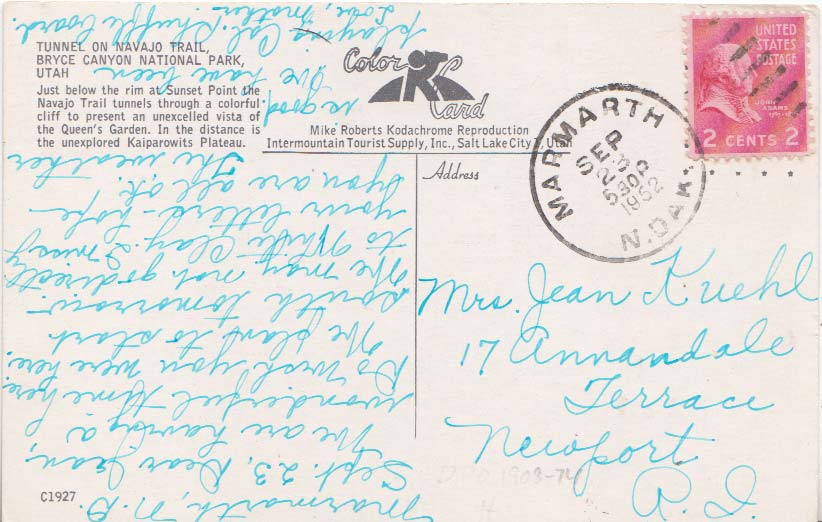 TUNNEL ON NAVAJO TRAIL,
BRYCE CANYON NATIONAL PARK,
UTAH
Just below the rim at Sunset Point the
Navajo Trail tunnels through a colorful
cliff to present an unexcelled vista of
the Queen's Garden. In the distance is
the unexplored Kaiparowits Plateau.
Color
Kard
Mike Roberts Kodachrome Reproduction
Intermountain Tourist Supply, Inc., Salt Lake City, Utah
UNITED
STATES
POSTAGE
JOHN
ADAMS
2 CENTS 2
MARMARTH
SEP
23
530P
1952
N.DAK.
Address
Mrs. Jean Kuehl
17 Annandale
Terrace
Newport
R. I.
DPO 1908-74
Marmarth, N.D.
Sept. 23, Dear Jean,
We are having a
wonderful time here.
Do wish you were here.
We plan to start
south tomorrow.
We may not go directly
to White Clay. I miss
your letters - hope
you are all ok.
The weather
is good
We have been
playing Cal. Shuffle board.
Love, Mother.
C1927